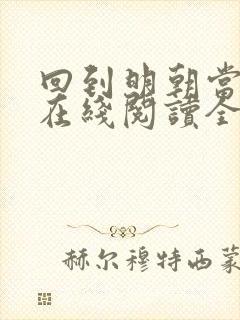 回到明朝當
在綫閱讀全
赫尔穆特西蒙